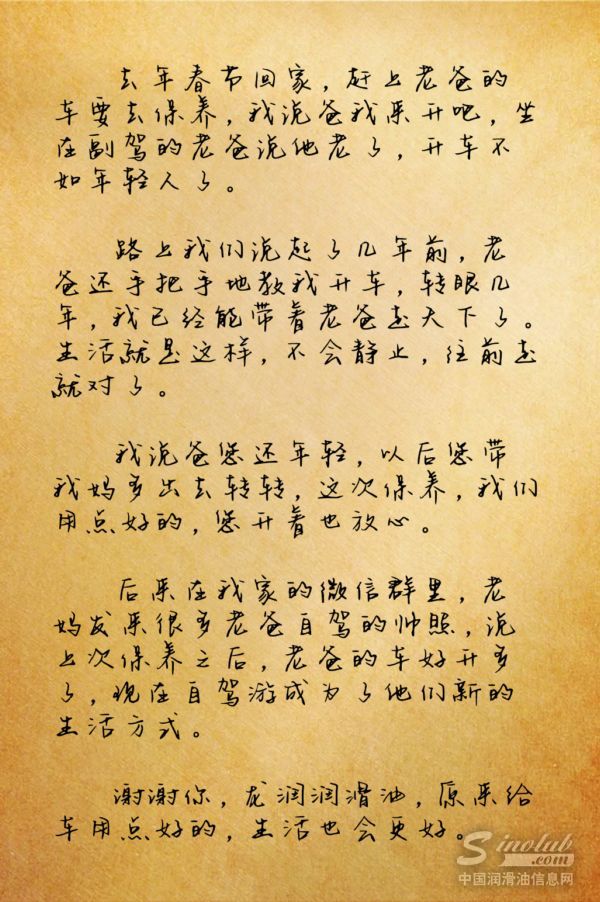 去年春节回家，赶上老爸的
车要去保养，我说爸我来开吧，坐
在副驾的老爸说他老了，开车不
如年轻人了。
路上我们说起了几年前，老
爸还手把手地教我开车，转眼几
年，我已经能带着老爸走天下了。
生活就是这样，不会静止，往前走
就对了。
我说爸您还年轻，以后您带
我妈多出去转转，这次保养，我们
用点好的，您开着也放心。
后来在我家的微信群里，老
妈发来很多老爸自驾的帅照，说
上次保养之后，老爸的车好开多
了，现在自驾游成为了他们新的
生活方式。
谢谢你，龙润润滑油，原来给
车用点好的，生活也会更好。
Sinolub
.com
中国润滑油信息网